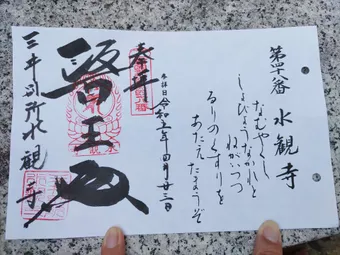 第十八番 水観寺
なむやくし
しょびょうなかれと
ねがいつつ
るりのくすりを
あたえたもうぞ
参拝日 令和三年四月廿三日
奉拝
醫王殿
三井別所水観寺